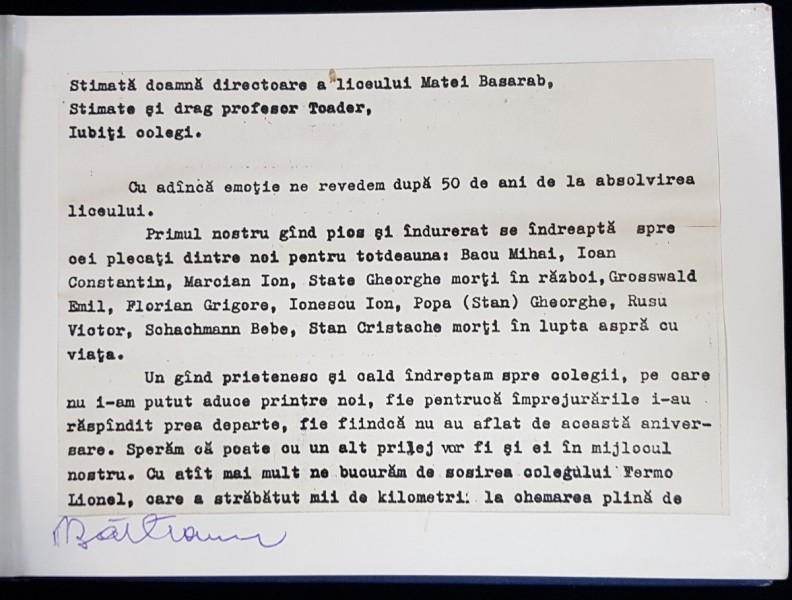 Stimată doamnă directoare a liceului Matei Basarab,
Stimate și drag profesor Toader,
Iubiți colegi.
Cu adîncă emoție ne revedem după 50 de ani de la absolvirea
liceului.
Primul nostru gînd pios și îndurerat se îndreaptă spre
cei plecați dintre noi pentru totdeauna: Bacu Mihai, Ioan
Constantin, Marcian Ion, State Gheorghe morți în război, Grosswald
Emil, Florian Grigore, Ionescu Ion, Popa (Stan) Gheorghe, Rusu
Victor, Schachmann Bebe, Stan Cristache morți în lupta aspră cu
viața.
Un gînd prietenesc și cald îndreptam spre colegii, pe care
nu i-am putut aduce printre noi, fie pentrucă împrejurările i-au
răspîndit prea departe, fie fiindcă nu au aflat de această aniver-
sare. Sperăm că poate cu un alt prilej vor fi și ei în mijlocul
nostru. Cu atît mai mult ne bucurăm de sosirea colegului Fermo
Lionel, care a străbătut mii de kilometri: la chemarea plină de